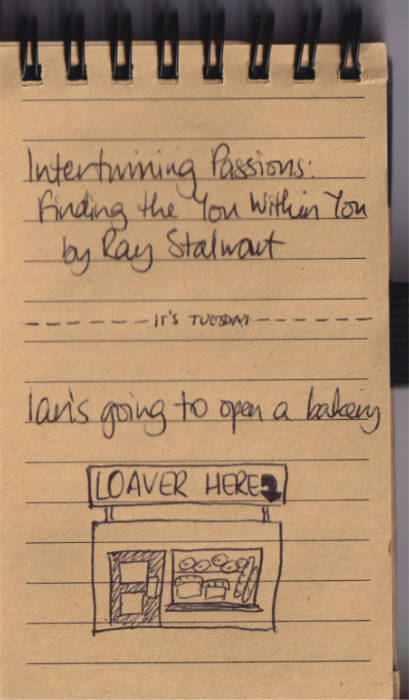 Intertwining Passions:
Finding the You Within You
by Ray Stalwart
IT'S TUESDAY
Ian's going to open a bakery
LOAVER HERE